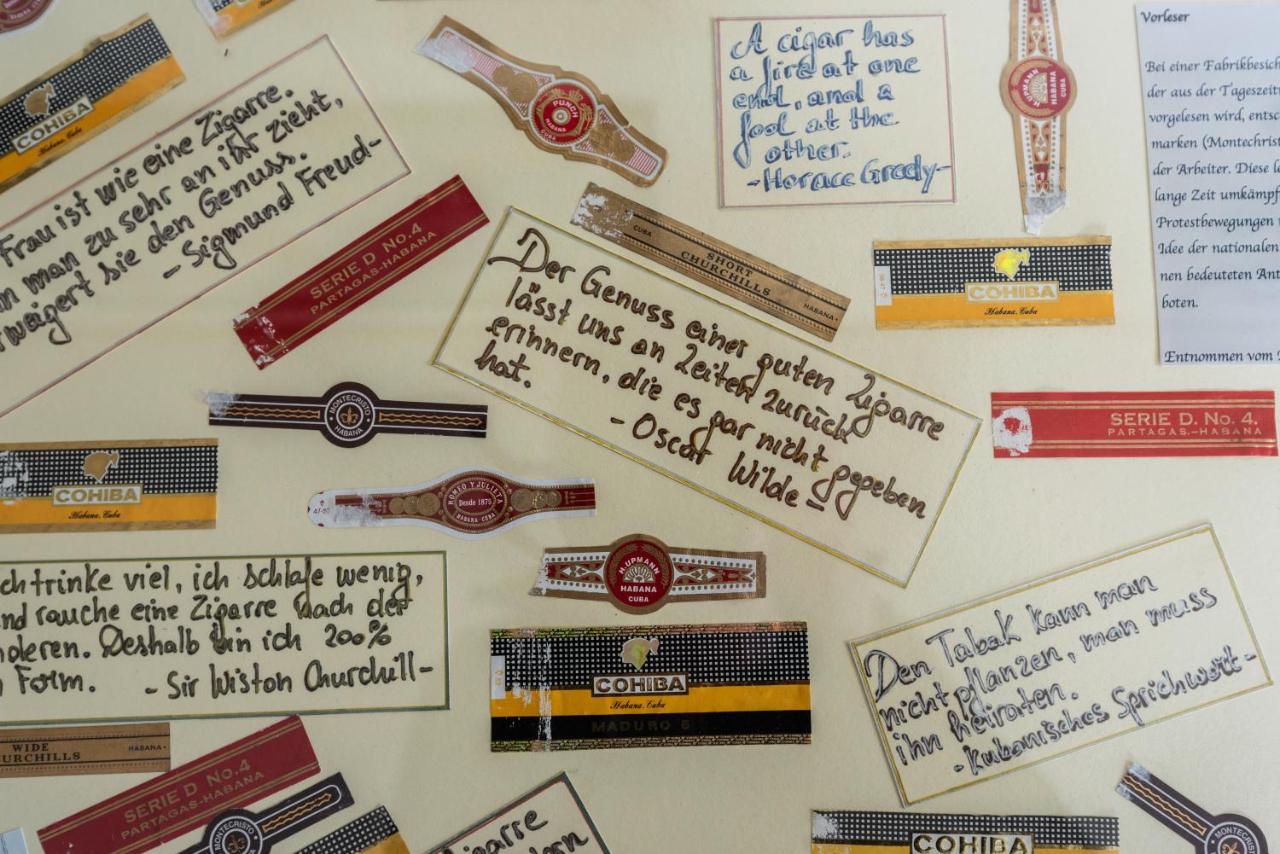 COHIBA
Habana, Cuba
Frau ist wie eine Zigarre.
man zu sehr an ihr zieht,
sie den Genuss.
- Sigmund Freud -
PUNCH
HABANA
CUBA
A cigar has
a fire at one
end, and a
fool at the
other.
- Horace Greely -
H. UPMANN
HABANA
CUBA
Vorleser
Bei einer Fabrikbesich
der aus der Tageszeit
vorgelesen wird, entsc
marken (Montechrist
der Arbeiter. Diese l
lange Zeit umkämpf
Protestbewegungen
Idee der nationalen
nen bedeuteten Ant
boten.
Entnommen vom
SERIE D No.4
PARTAGAS-HABANA
CUBA
SHORT
CHURCHILLS
HABANA
COHIBA
Habana, Cuba
Der Genuss einer guten Zigarre
lässt uns an Zeiten zurück
erinnern, die es gar nicht gegeben
hat.
- Oscar Wilde -
MONTECRISTO
HABANA
SERIE D. No. 4.
PARTAGAS.-HABANA
COHIBA
Habana, Cuba
ROMEO Y JULIETA
Desde 1875
HABANA CUBA
H. UPMANN
HABANA
CUBA
ch trinke viel, ich schlafe wenig,
nd rauche eine Zigarre nach der
nderen. Deshalb bin ich 200%
Form.
- Sir Wiston Churchill -
COHIBA
Habana, Cuba
MADURO 5
Den Tabak kann man
nicht pflanzen, man muss
ihn heiraten.
- Kubanisches Sprichwort -
WIDE
URCHILLS
HABANA
SERIE D No.4
PARTAGAS-HABANA
MONTECRISTO
igarre
dern
COHIBA
MONTECRISTO